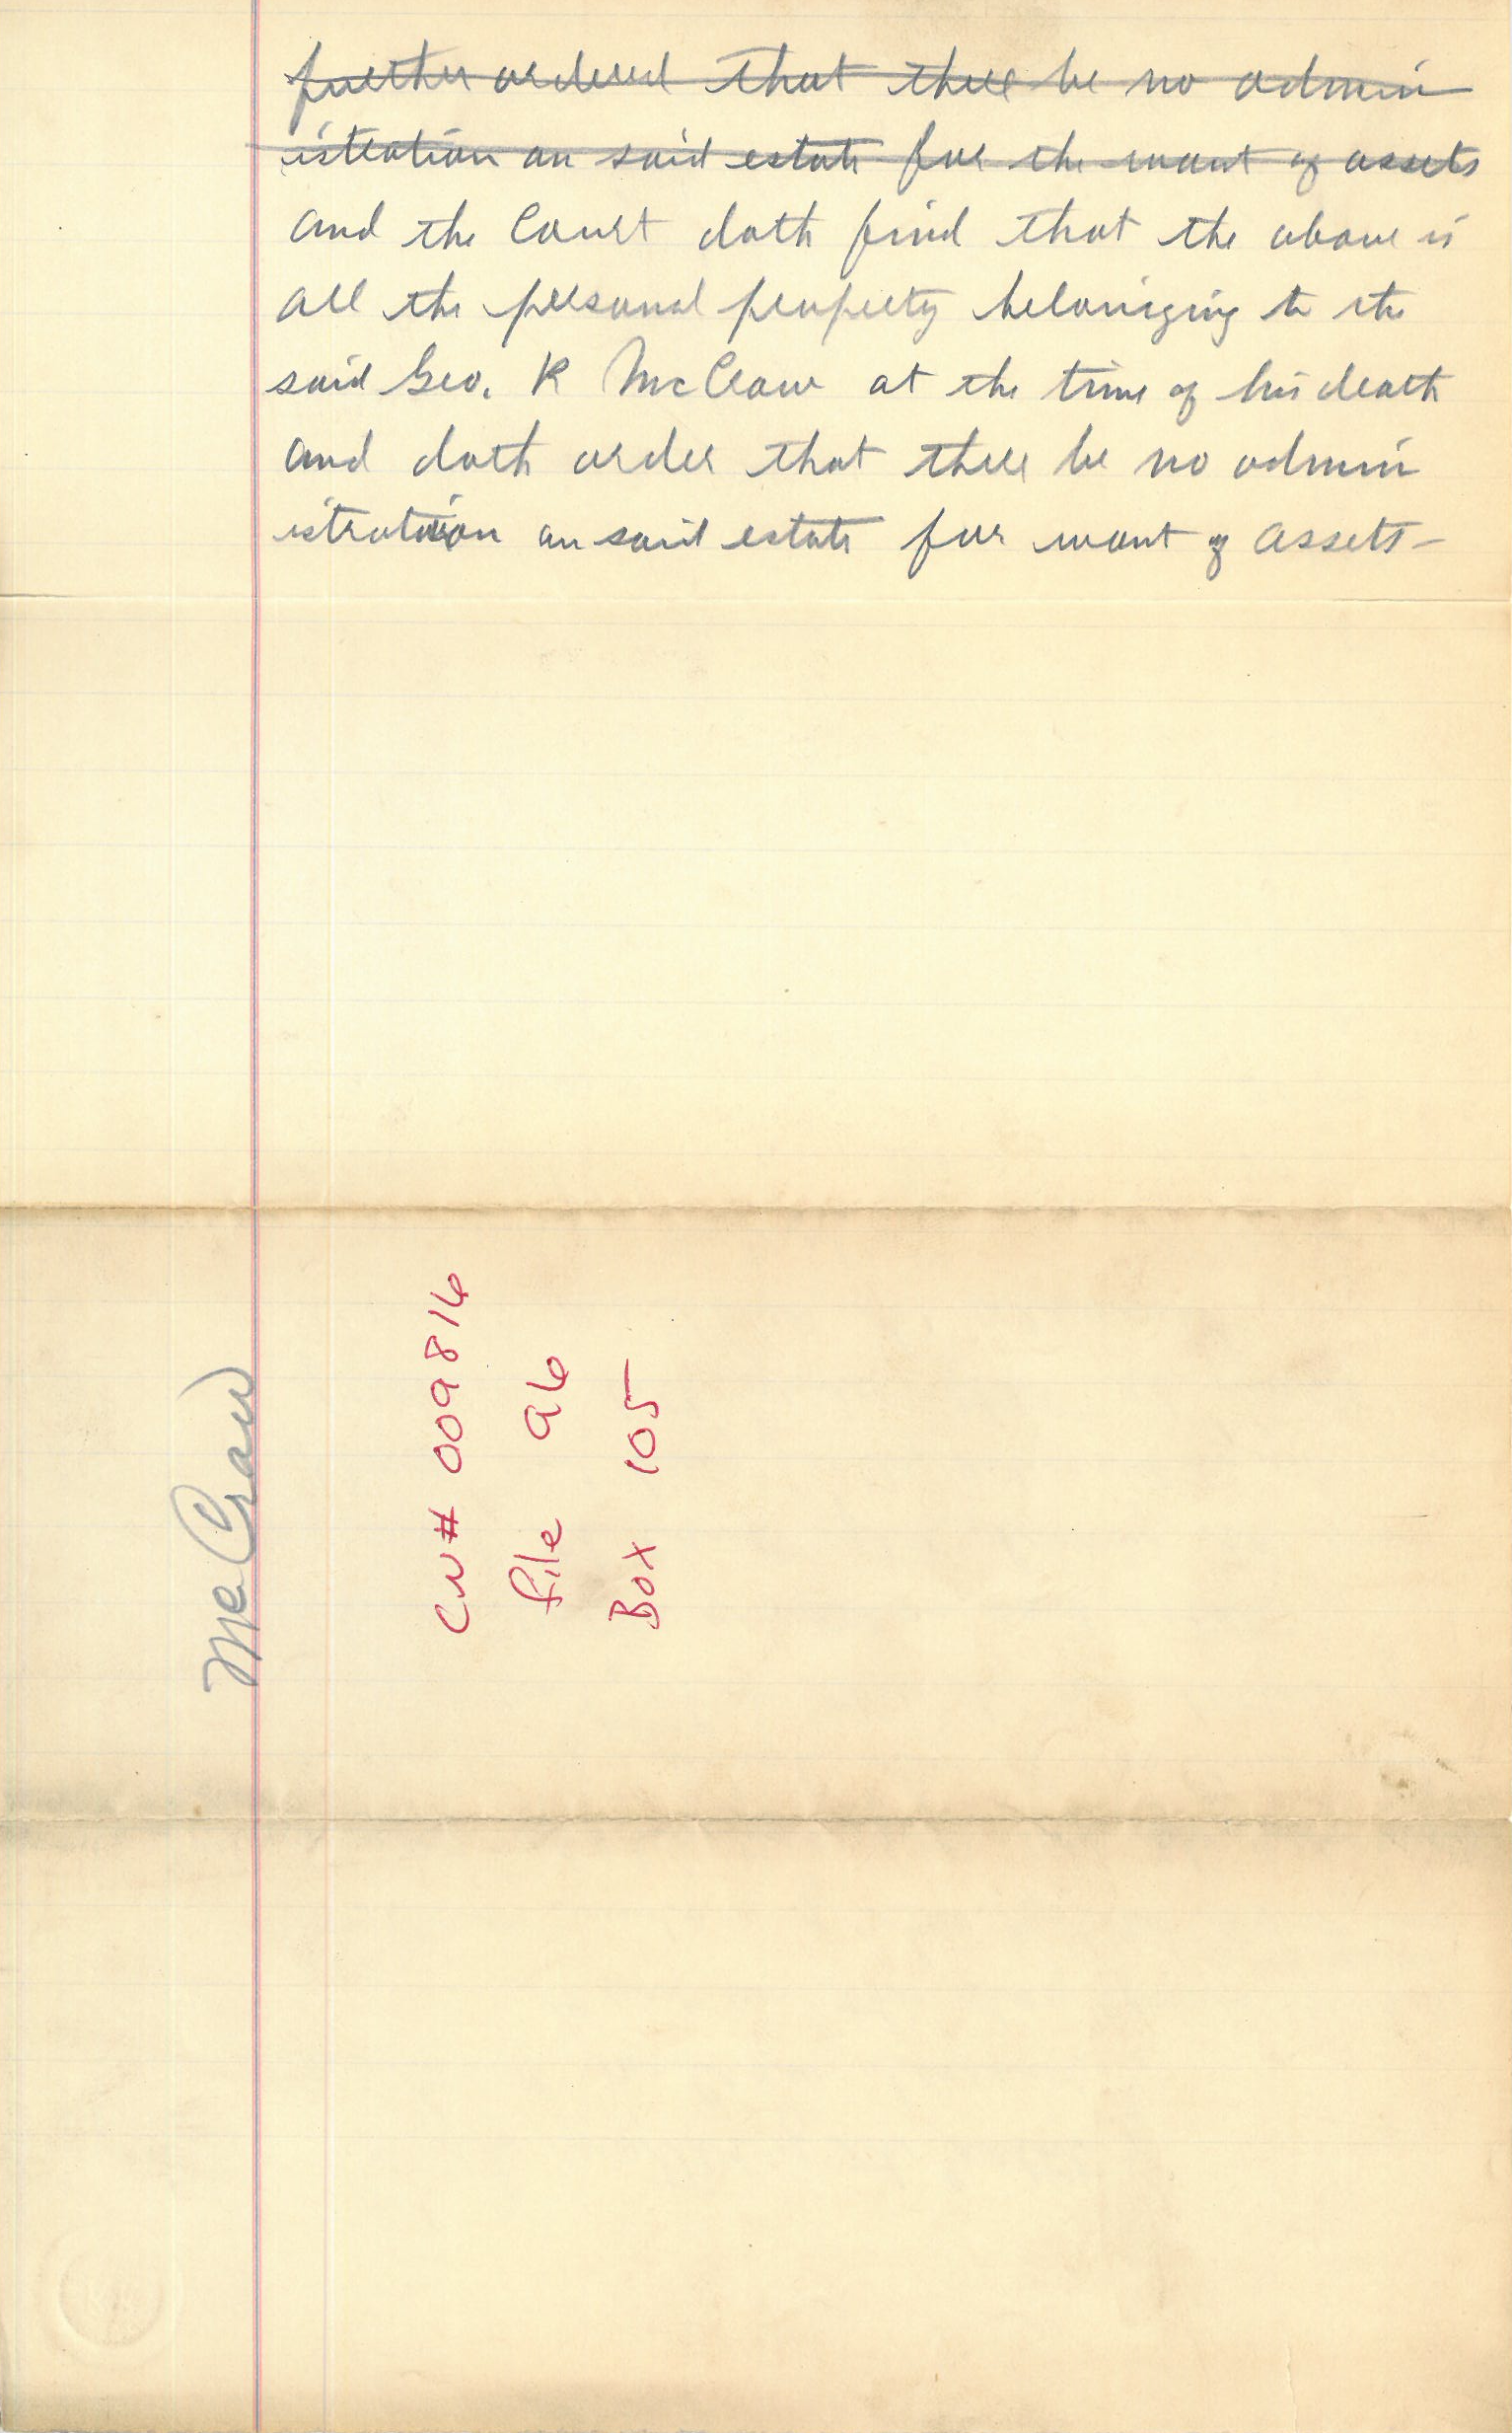 further ordered that there be no admin
istration on said estate for the want of assets
and the Court doth find that the above is
all the personal property belonging to the
said Geo. R McCraw at the time of his death
and doth order that there be no admin
istration on said estate for want of assets-
McCraw
CN# 009816
file 96
Box 105